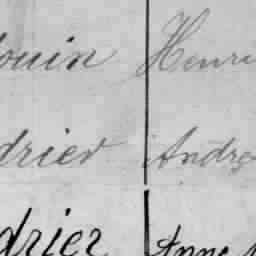 ouin Henri
drier André
drier Anne